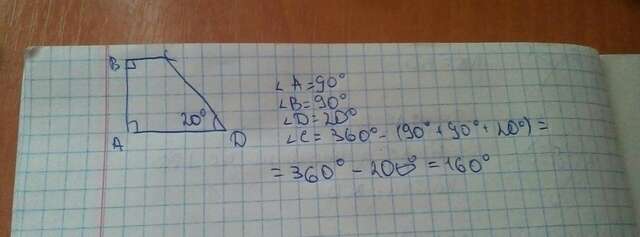 B C
20°
A D
∠A=90°
∠B=90°
∠D=20°
∠C=360°-(90°+90°+20°)=
=360°-200°=160°